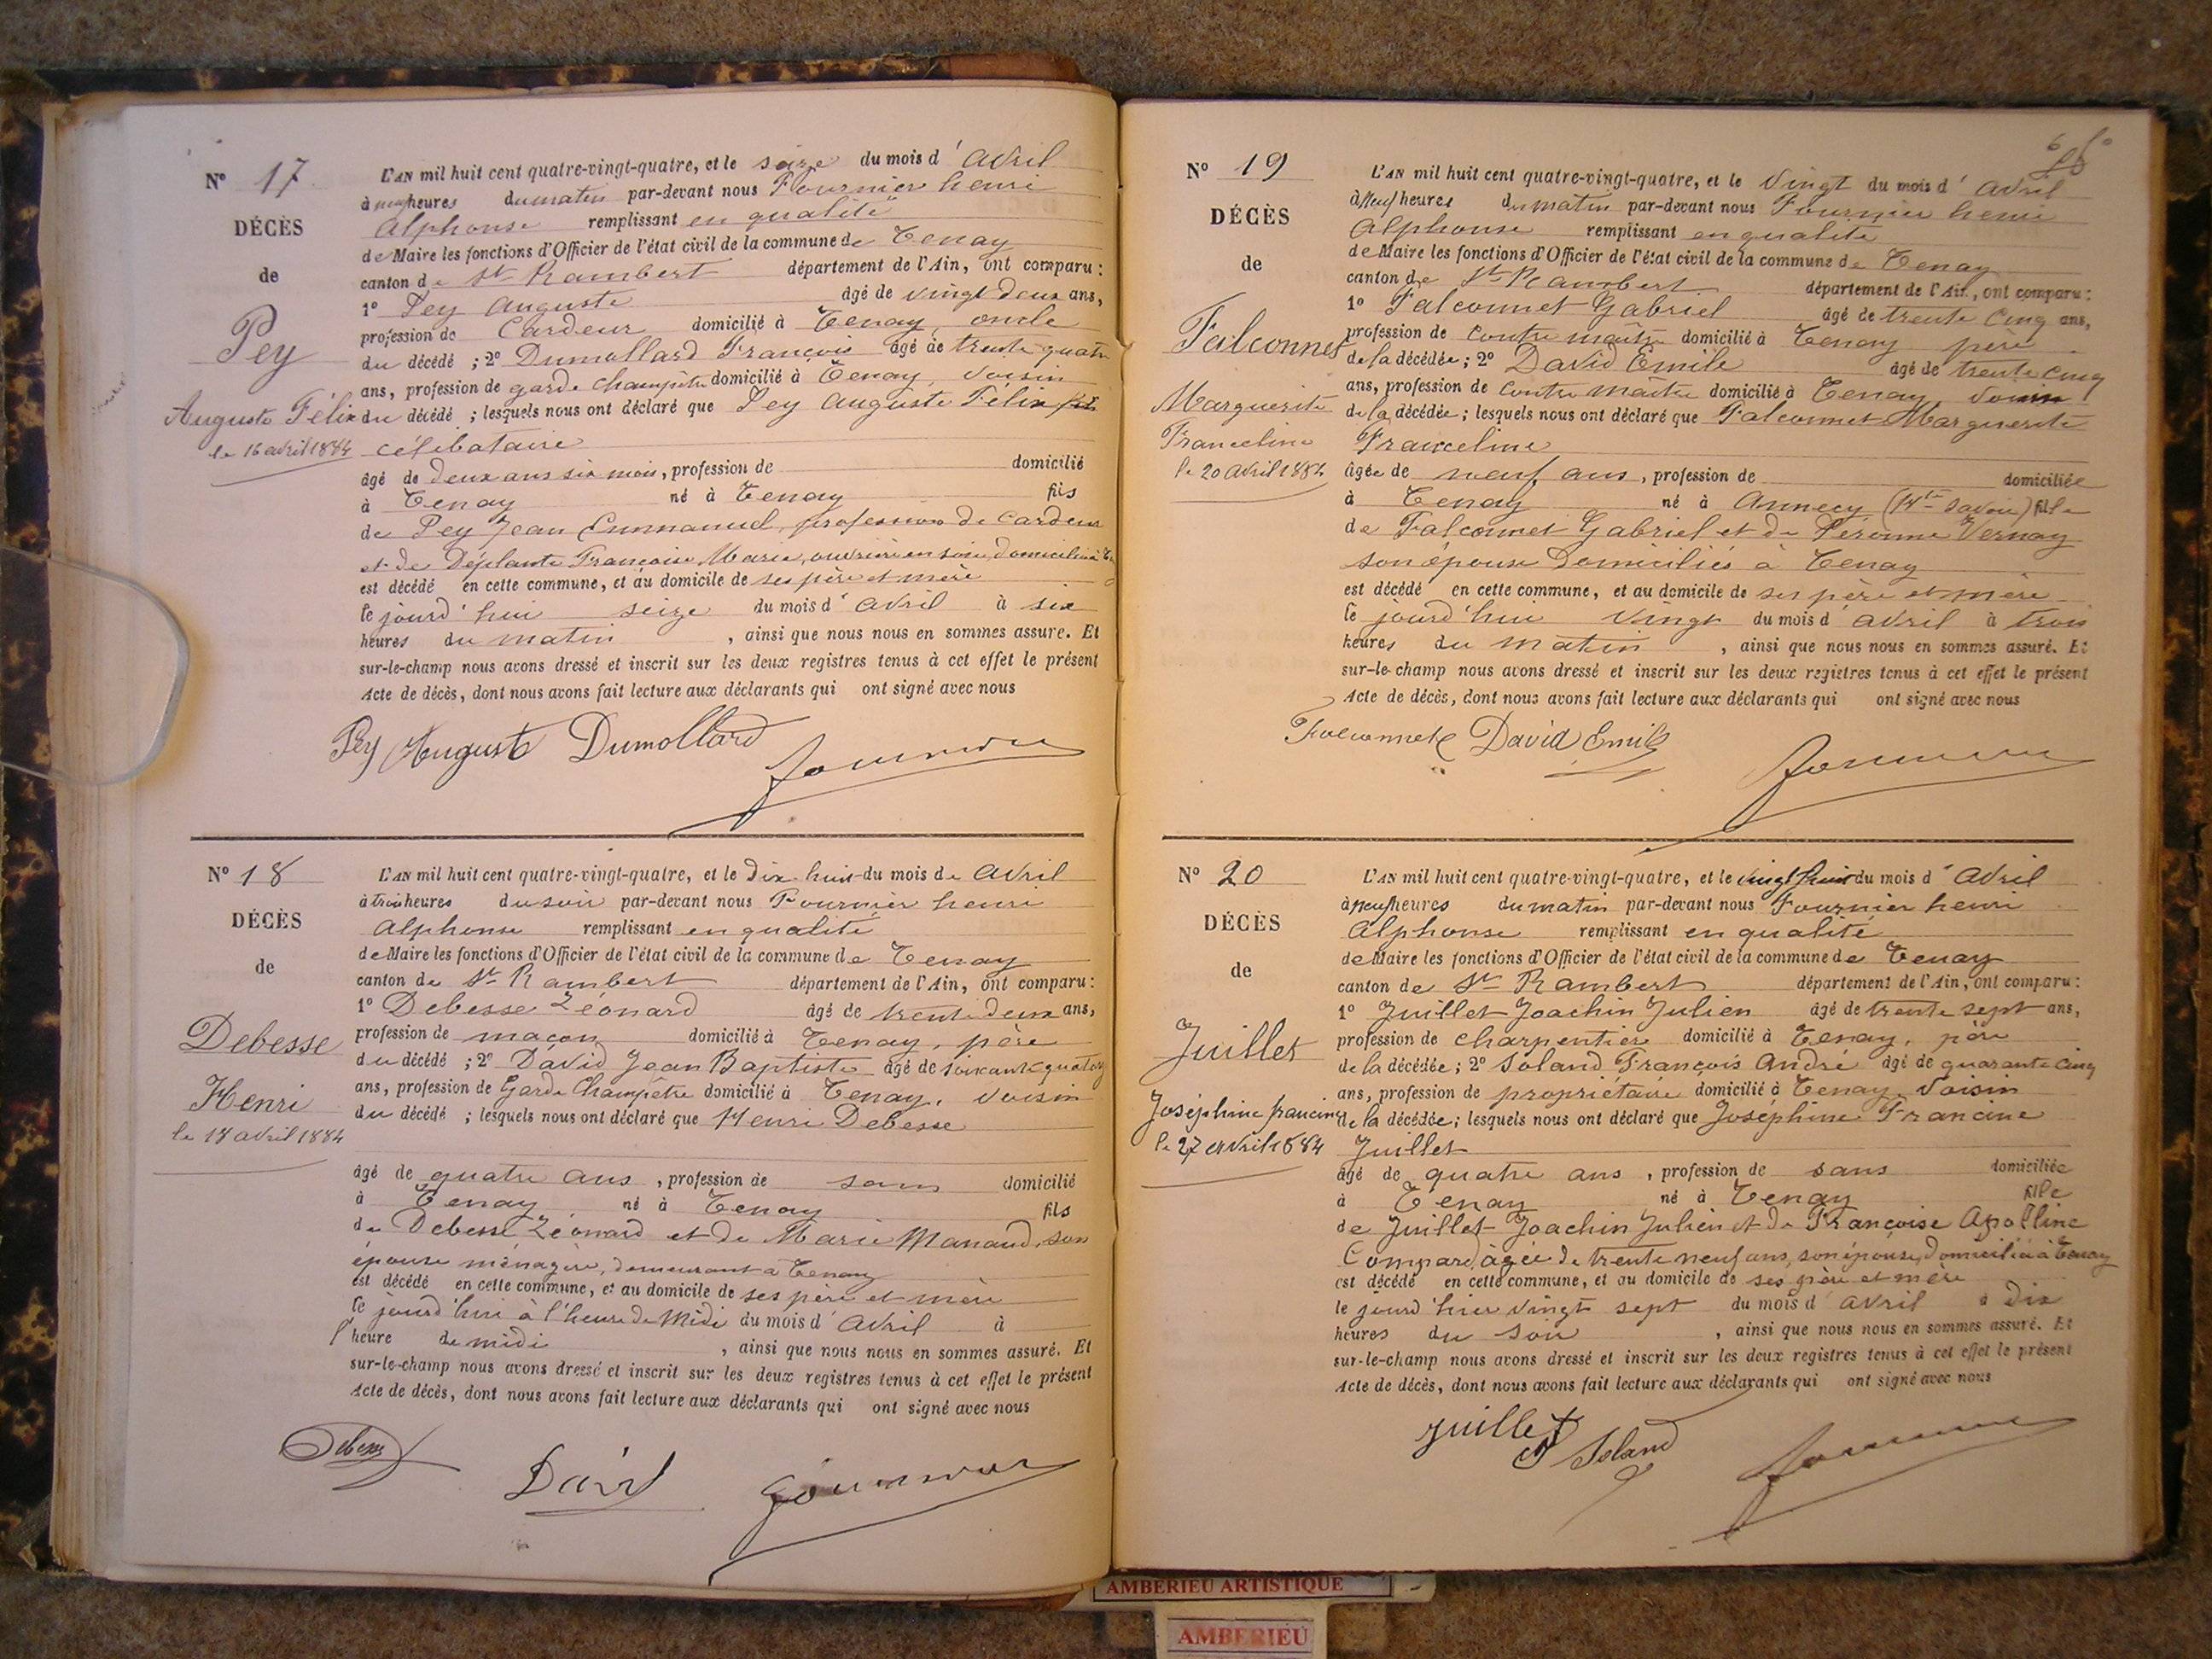 N° 17
DÉCÈS
de
Pey
Auguste Félix
le 16 avril 1884
L'AN mil huit cent quatre-vingt-quatre, et le seize du mois d'avril
à neuf heures du matin par-devant nous Fournier henri
Alphonse remplissant en qualité
de Maire les fonctions d'Officier de l'état civil de la commune de Tenay
canton de St Rambert département de l'Ain, ont comparu :
1° Pey Auguste âgé de vingt deux ans,
profession de Cardeur domicilié à Tenay, oncle
du décédé ; 2° Dumollard François âgé de trente quatre
ans, profession de garde champêtre domicilié à Tenay, voisin
du décédé ; lesquels nous ont déclaré que Pey Auguste Félix
célibataire
âgé de deux ans six mois, profession de domicilié
à Tenay né à Tenay fils
de Pey Jean Emmanuel, profession de cardeur
et de Déplante Françoise Marie, ouvrière en soie, domiciliés à
est décédé en cette commune, et au domicile de ses père et mère
le jourd'hui seize du mois d'avril à six
heures du matin , ainsi que nous nous en sommes assuré. Et
sur-le-champ nous avons dressé et inscrit sur les deux registres tenus à cet effet le présent
Acte de décès, dont nous avons fait lecture aux déclarants qui ont signé avec nous
Pey Auguste Dumollard Fournier
N° 18
DÉCÈS
de
Debesse
Henri
le 18 avril 1884
L'AN mil huit cent quatre-vingt-quatre, et le dix huit du mois de avril
à trois heures du soir par-devant nous Fournier henri
Alphonse remplissant en qualité
de Maire les fonctions d'Officier de l'état civil de la commune de Tenay
canton de St Rambert département de l'Ain, ont comparu :
1° Debesse Léonard âgé de trente deux ans,
profession de maçon domicilié à Tenay, père
du décédé ; 2° David Jean Baptiste âgé de soixante quatorze
ans, profession de Garde Champêtre domicilié à Tenay, voisin
du décédé ; lesquels nous ont déclaré que Henri Debesse
âgé de quatre ans , profession de sans domicilié
à Tenay né à Tenay fils
de Debesse Léonard et de Marie Manaud, son
épouse ménagère, demeurant à Tenay
est décédé en cette commune, et au domicile de ses père et mère
le jourd'hui à l'heure de Midi du mois d'avril à
l'heure de midi , ainsi que nous nous en sommes assuré. Et
sur-le-champ nous avons dressé et inscrit sur les deux registres tenus à cet effet le présent
Acte de décès, dont nous avons fait lecture aux déclarants qui ont signé avec nous
Debesse David Fournier
N° 19
DÉCÈS
de
Falconnet
Marguerite
Franceline
le 20 avril 1884
L'AN mil huit cent quatre-vingt-quatre, et le vingt du mois d'avril
à neuf heures du matin par-devant nous Fournier henri
Alphonse remplissant en qualité
de Maire les fonctions d'Officier de l'état civil de la commune de Tenay
canton de St Rambert département de l'Ain, ont comparu :
1° Falconnet Gabriel âgé de trente cinq ans,
profession de contre maître domicilié à Tenay père
de la décédée ; 2° David Emile âgé de trente cinq
ans, profession de contre maître domicilié à Tenay voisin
de la décédée ; lesquels nous ont déclaré que Falconnet Marguerite
Franceline
âgée de neuf ans , profession de domiciliée
à Tenay né à Annecy (Hte Savoie) fille
de Falconnet Gabriel et de Péronne Vernay
son épouse domiciliés à Tenay
est décédé en cette commune, et au domicile de ses père et mère
le jourd'hui vingt du mois d'avril à trois
heures du matin , ainsi que nous nous en sommes assuré. Et
sur-le-champ nous avons dressé et inscrit sur les deux registres tenus à cet effet le présent
Acte de décès, dont nous avons fait lecture aux déclarants qui ont signé avec nous
Falconnet David Emile Fournier
N° 20
DÉCÈS
de
Juillet
Joséphine francine
le 27 avril 1884
L'AN mil huit cent quatre-vingt-quatre, et le vingt huit du mois d'avril
à neuf heures du matin par-devant nous Fournier henri
Alphonse remplissant en qualité
de Maire les fonctions d'Officier de l'état civil de la commune de Tenay
canton de St Rambert département de l'Ain, ont comparu :
1° Juillet Joachin Julien âgé de trente sept ans,
profession de charpentier domicilié à Tenay, père
de la décédée ; 2° Soland François André âgé de quarante cinq
ans, profession de propriétaire domicilié à Tenay, voisin
de la décédée ; lesquels nous ont déclaré que Joséphine Francine
Juillet
âgé de quatre ans , profession de sans domiciliée
à Tenay né à Tenay fille
de Juillet Joachin Julien et de Françoise Apolline
Compard, agée de trente neuf ans, son épouse, domiciliée à Tenay
est décédé en cette commune, et au domicile de ses père et mère
le jour d'hier vingt sept du mois d'avril à dix
heures du soir , ainsi que nous nous en sommes assuré. Et
sur-le-champ nous avons dressé et inscrit sur les deux registres tenus à cet effet le présent
Acte de décès, dont nous avons fait lecture aux déclarants qui ont signé avec nous
Juillet Soland Fournier
AMBERIEU ARTISTIQUE
AMBERIEU